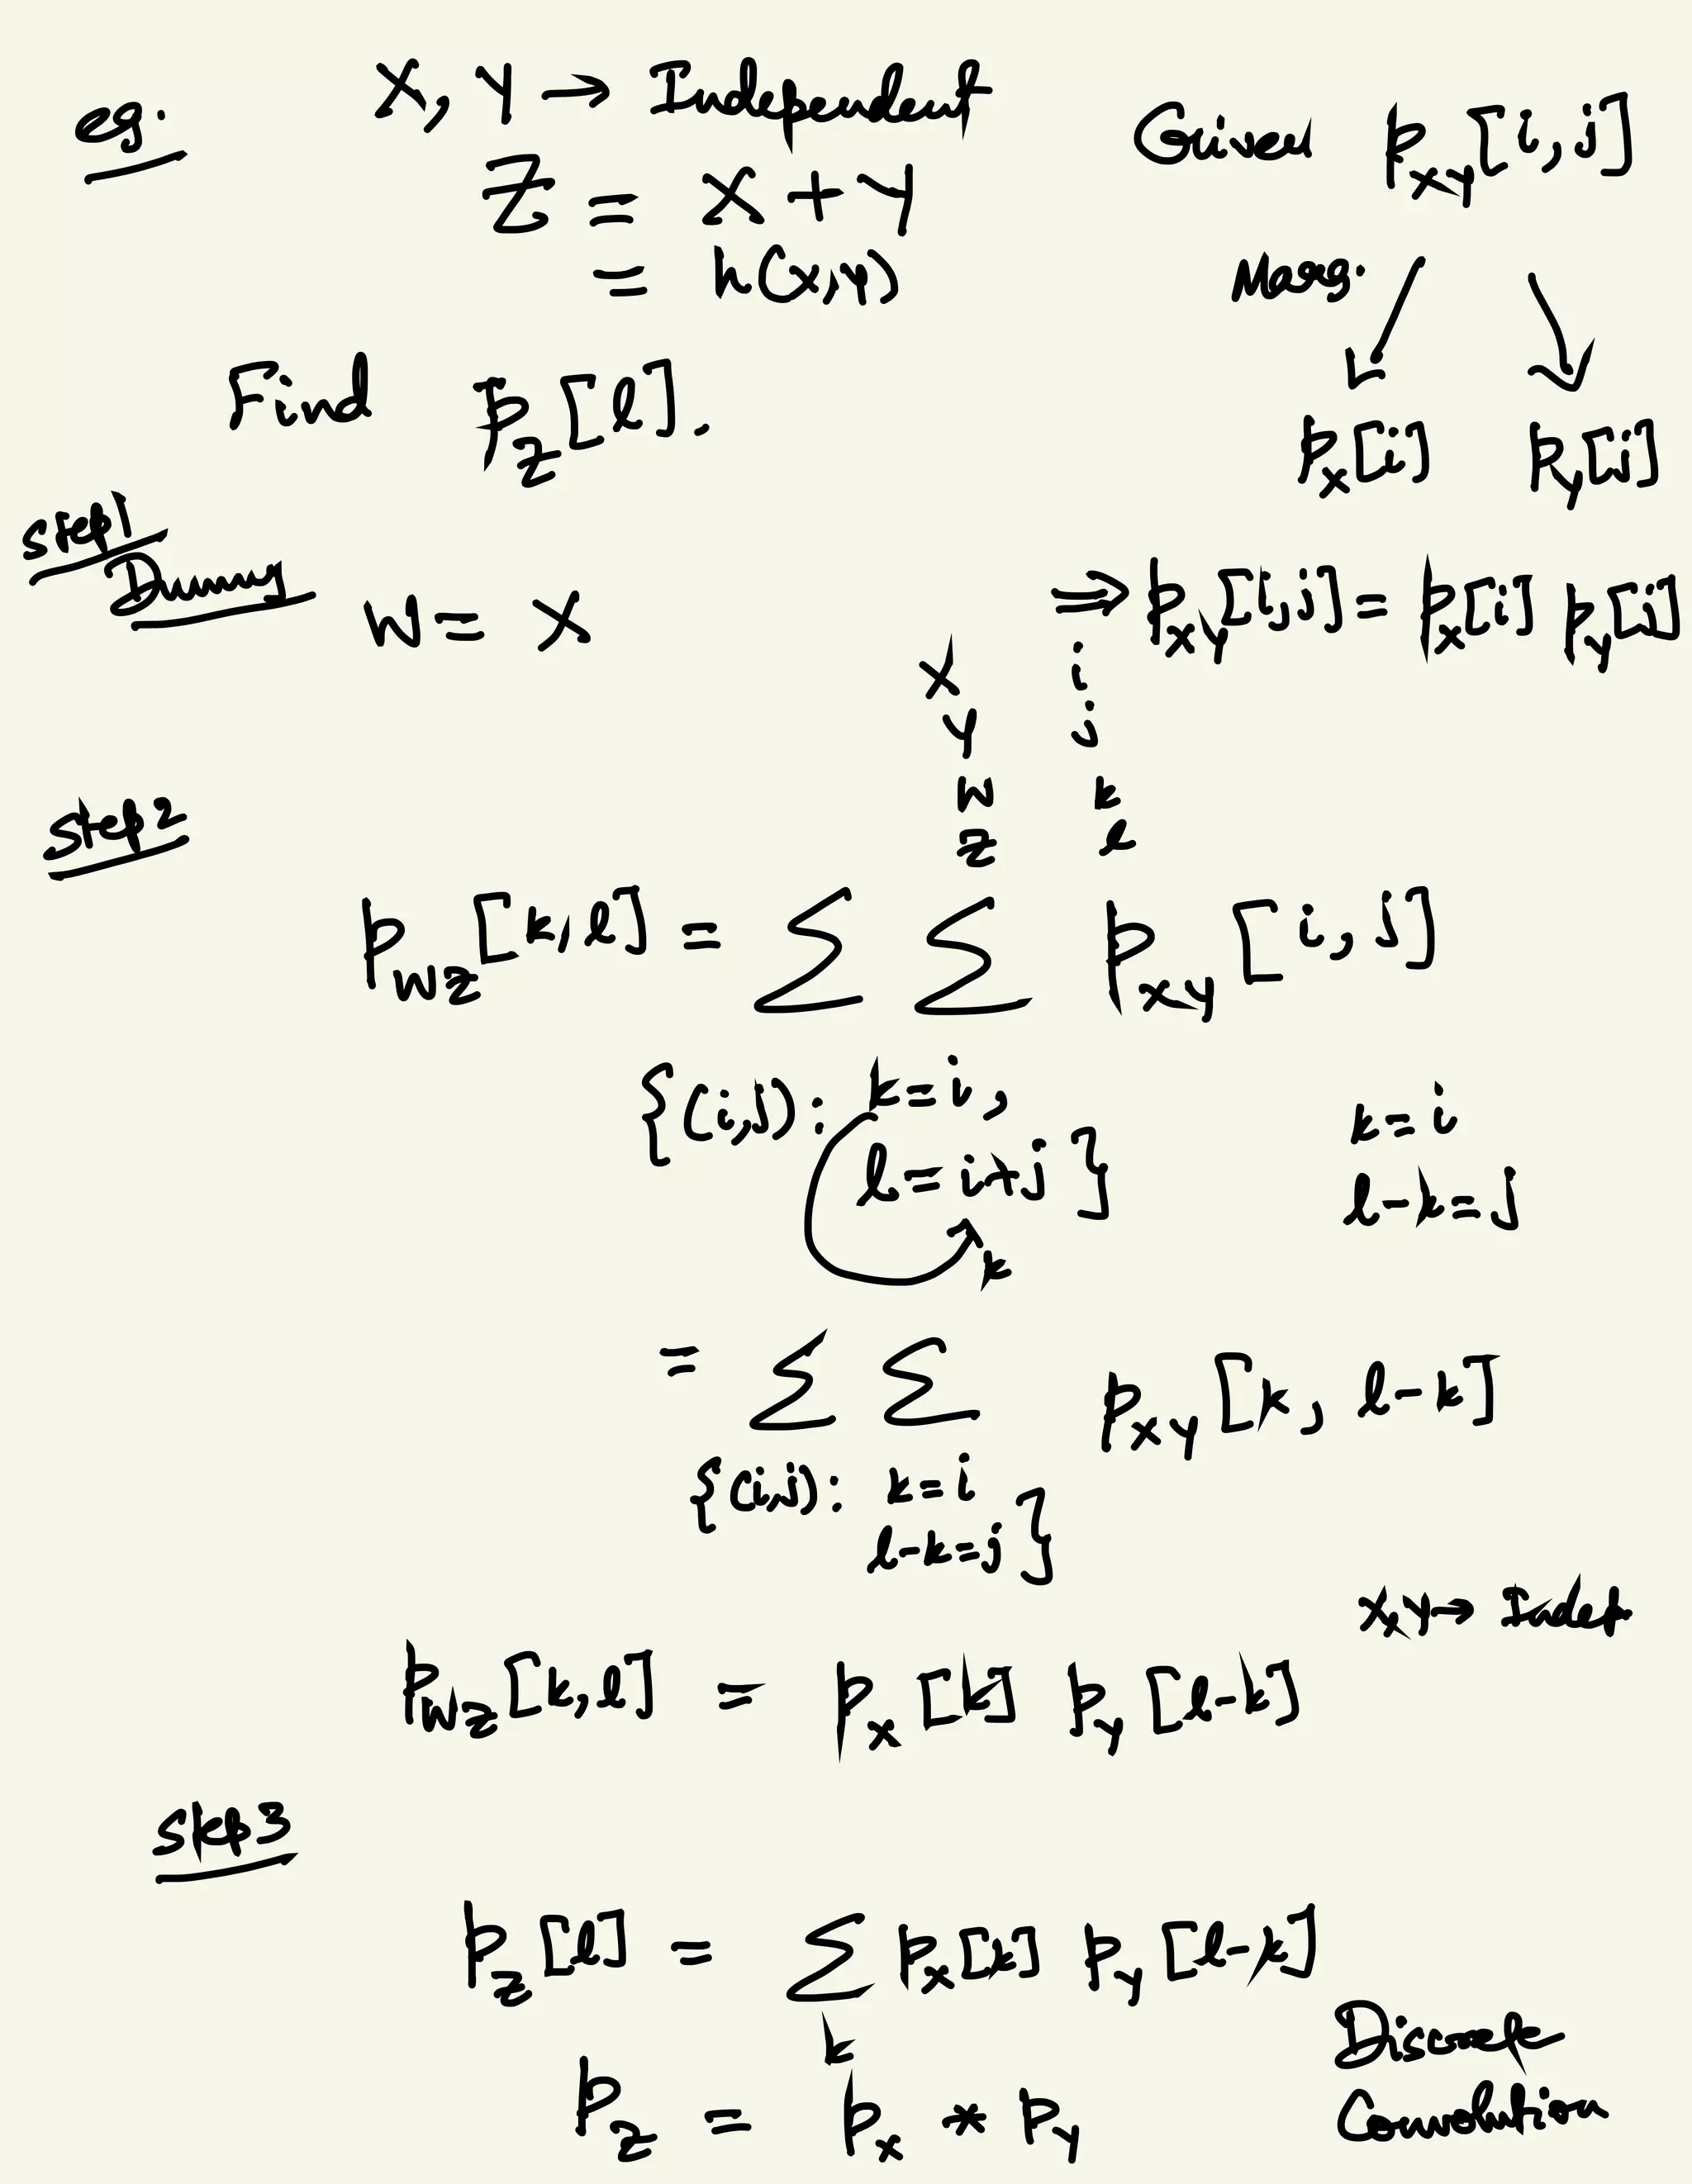 eg.
X, Y → Independent
Z = X + Y
= h(X,Y)
Given p_XY[i,j]
Marg.
p_X[i] p_Y[j]
Find p_Z[l].
Step1
Dummy W = X
⇒ p_XY[i,j] = p_X[i] p_Y[j]
X i
Y j
W k
Z l
Step2
p_WZ[k,l] = ∑ ∑ p_XY[i,j]
{(i,j): k=i,
l=i+j}
k
k=i
l-k=j
= ∑ ∑ p_XY[k, l-k]
{(i,j): k=i
l-k=j}
X,Y → Indep.
p_WZ[k,l] = p_X[k] p_Y[l-k]
Step3
p_Z[l] = ∑ p_X[k] p_Y[l-k]
k
p_Z = p_X * p_Y
Discrete
Convolution